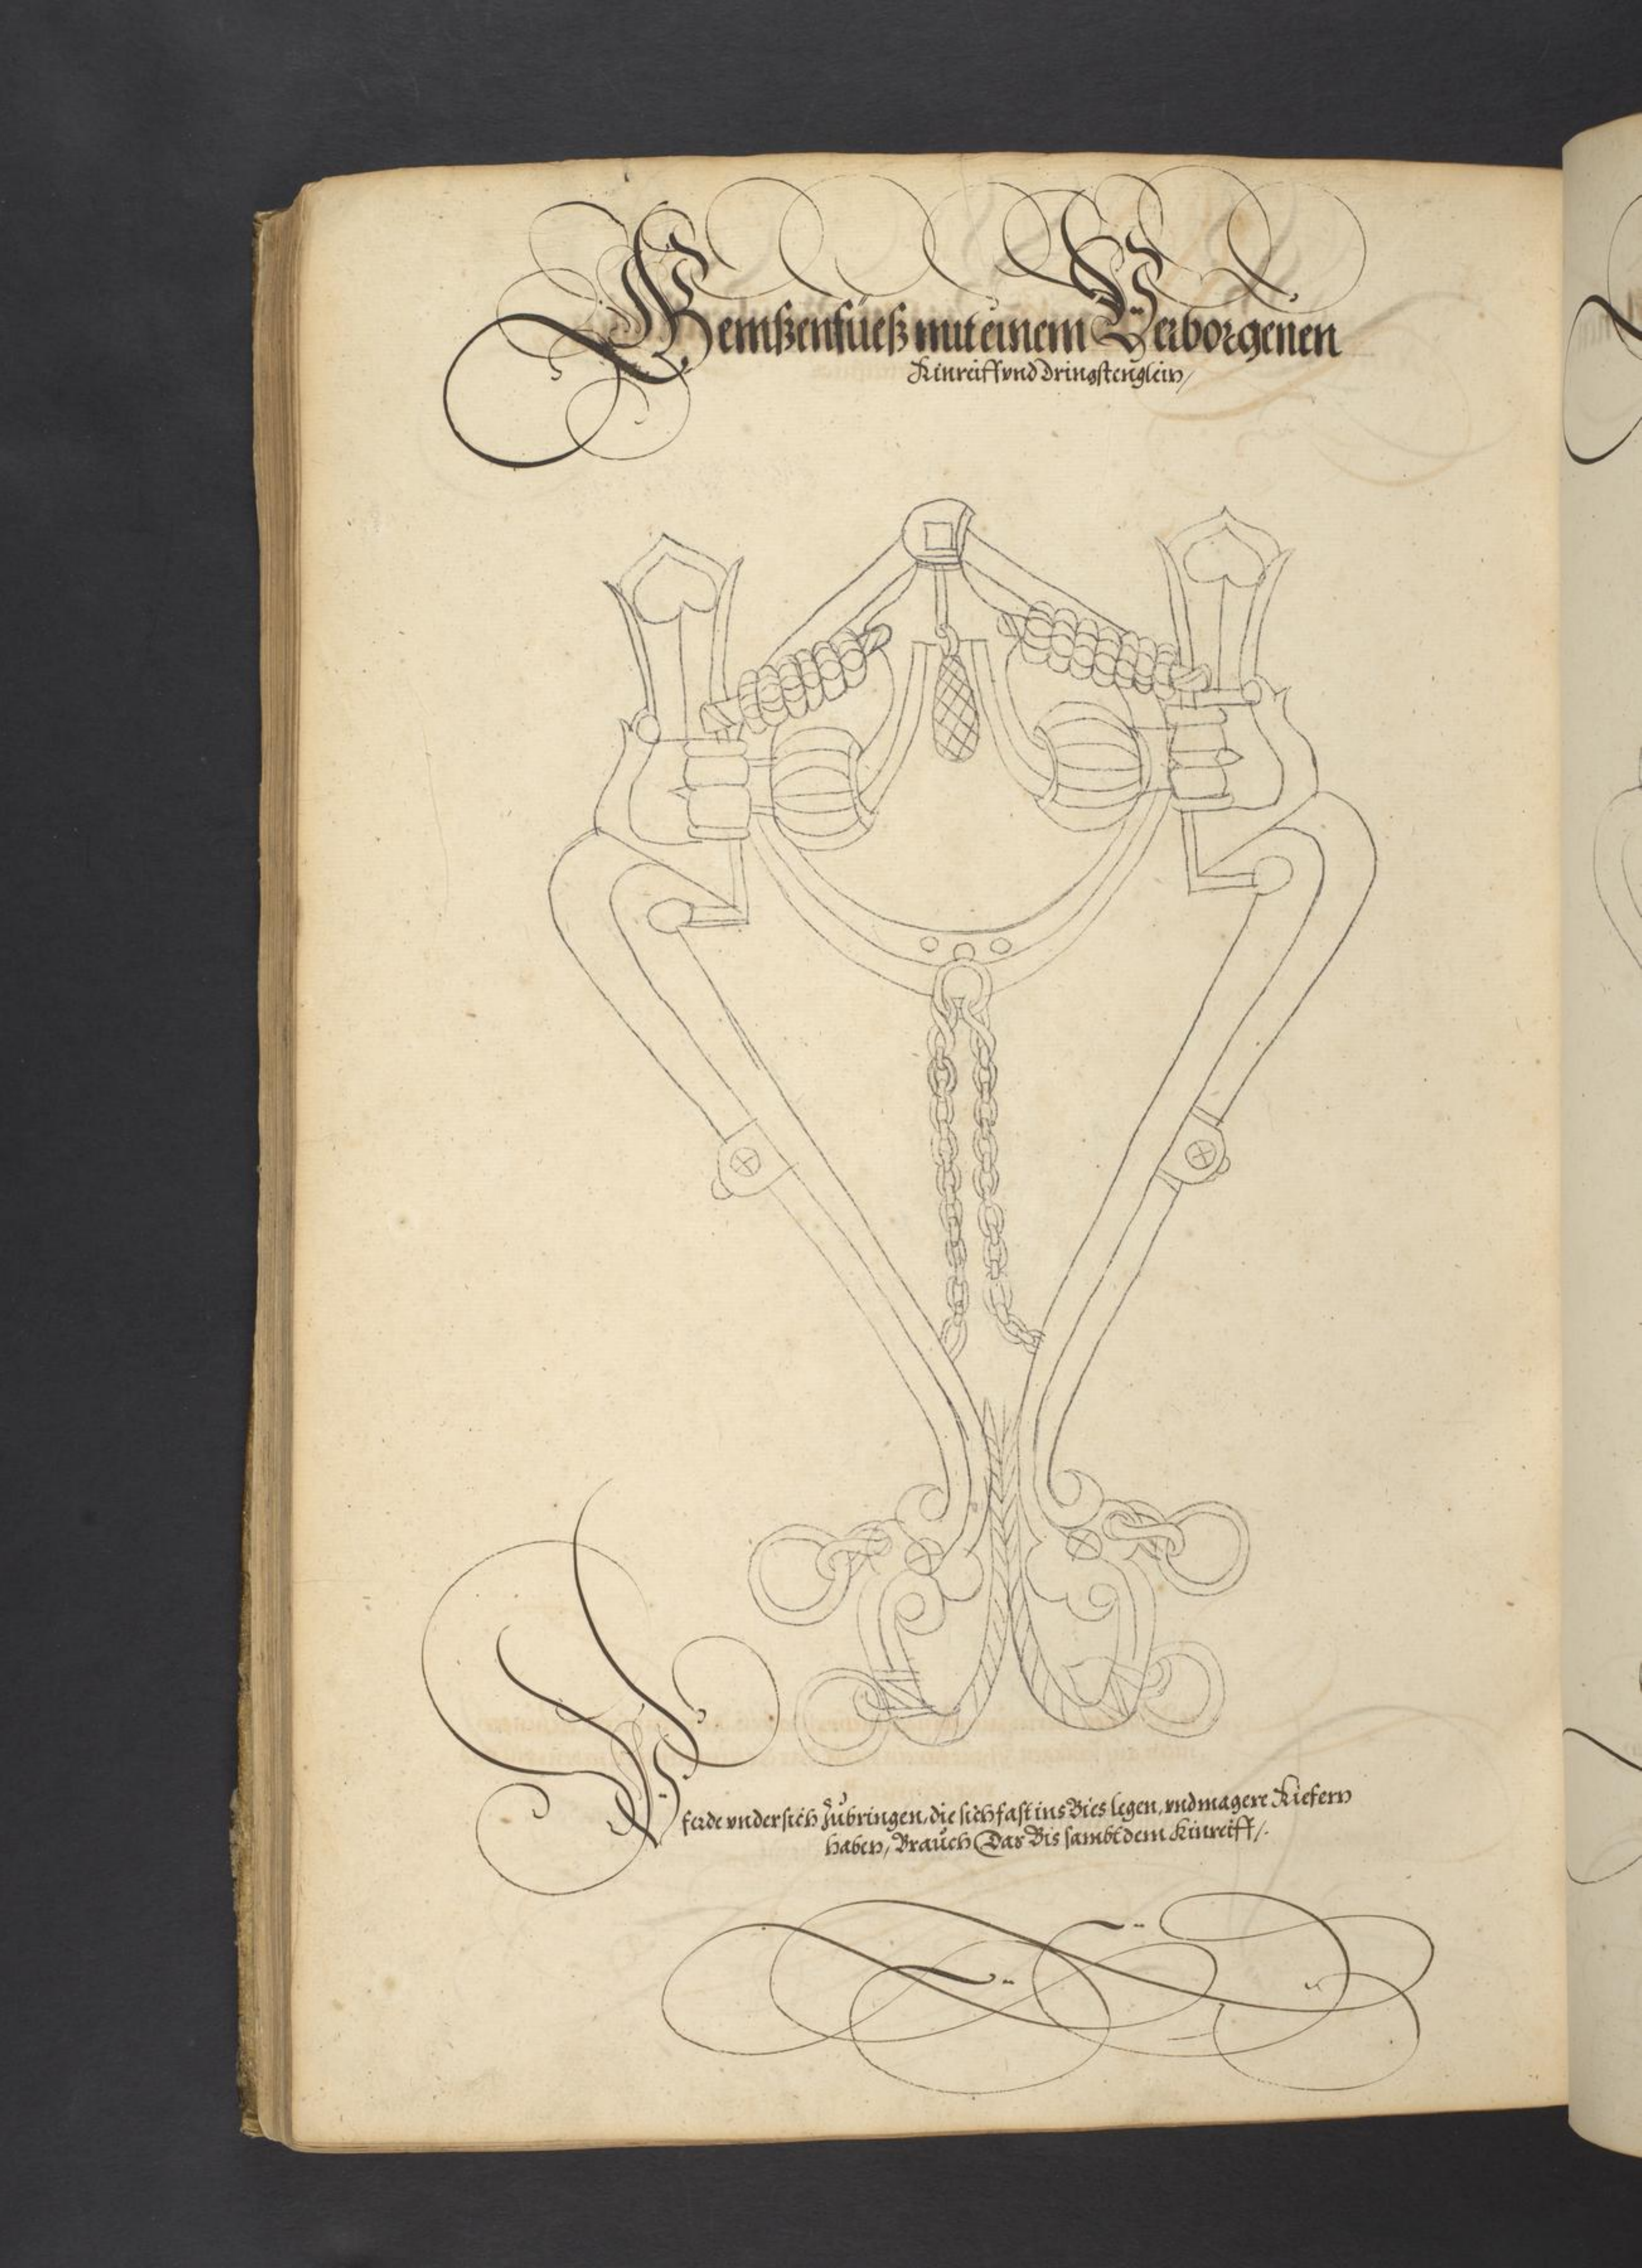 Gemßenfüeß mit einem Verborgenen
Kinreiff vnd dringstenglein/
Pferde vnder sich zubringen, die sich fast ins Bies legen, vnd magere Kiefern
haben, Brauch Das Bis sambt dem Kinreiff/.